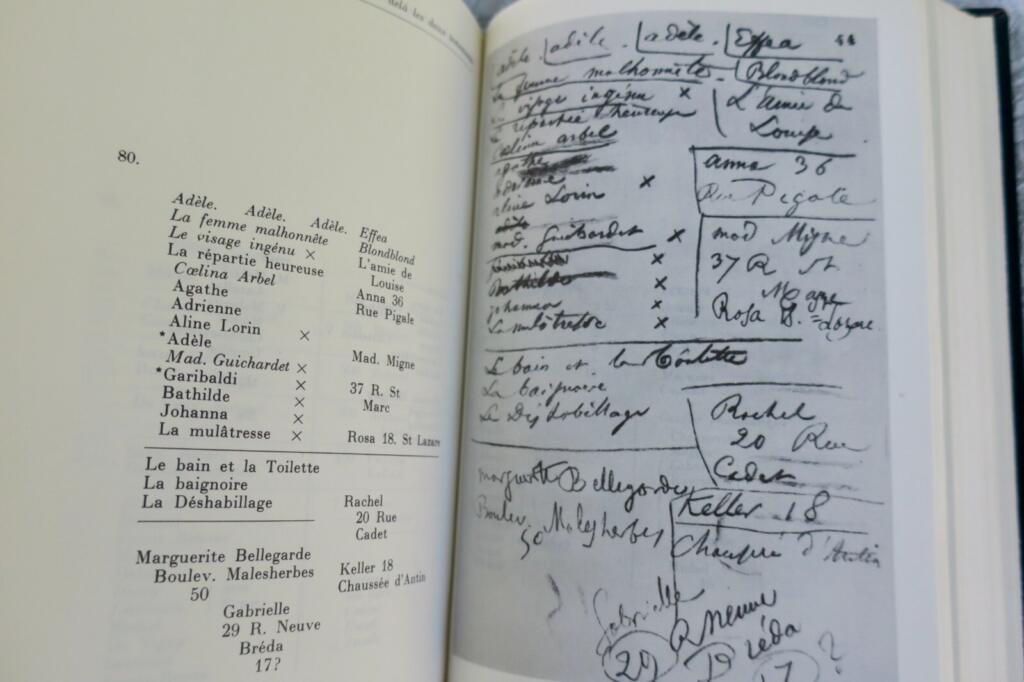 delà les deux
80.
Adèle. Adèle. Adèle. Effea
La femme malhonnête Blondblond
Le visage ingénu × L'amie de
La répartie heureuse Louise
Cœlina Arbel Anna 36
Agathe Rue Pigale
Adrienne
Aline Lorin ×
*Adèle
Mad. Guichardet × Mad. Migne
*Garibaldi × 37 R. St
Bathilde × Marc
Johanna ×
La mulâtresse × Rosa 18. St Lazare
Le bain et la Toilette
La baignoire
La Déshabillage Rachel
20 Rue
Cadet
Marguerite Bellegarde
Boulev. Malesherbes Keller 18
50 Chaussée d'Antin
Gabrielle
29 R. Neuve
Bréda
17?
44
adèle. adèle. adèle. Effea
La femme malhonnête. Blondblond
Le visage ingénu × L'amie de
La répartie heureuse Louise
Cœlina arbel
agathe anna 36
adrienne Rue Pigale
aline Lorin ×
adèle
mad. Guichardet × mad Migne
× 37 R St
Bathilde × Marc
johanna × Rosa 18. =Lazare
La mulâtresse ×
Le bain et la Toilette
La baignoire
Le Déshabillage Rachel
20 Rue
Cadet
marguerite Bellegarde
Boulev. Malesherbes Keller 18
50 Chaussée d'Antin
Gabrielle
29 R neuve
Bréda
17 ?